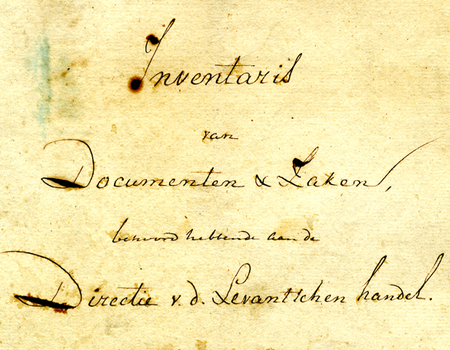 Inventaris
van
Documenten & Zaken,
behoord hebbende aan de
Directie v. d. Levantschen handel.